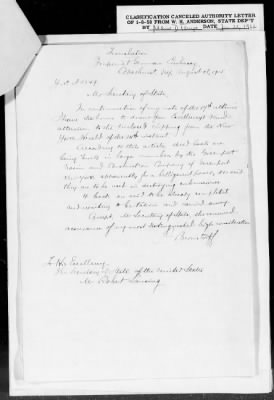 CLASSIFICATION CANCELED AUTHORITY LETTER
OF 1-8-58 FROM W. H. ANDERSON, STATE DEP'T
BY DATE
Translation
Imperial German Embassy
August 1915
Mr. Secretary of State,
In continuation of my note of the 19th ultimo
I have the honor to draw your Excellency's kind
attention to the enclosed clipping from the New
York Herald of the
According to this article, steel boats are
being built in large number by the Greenport
Basin and Construction Company of Greenport
New York apparently for a belligerent power, and
they are to be used in destroying submarines.
boats are said to be already completed
and to be taken and carried away.
Accept, Mr. Secretary of State, the renewed
assurance of my most distinguished high consideration
Bernstorff
To His Excellency
The Secretary of State of the United States
Mr. Robert Lansing